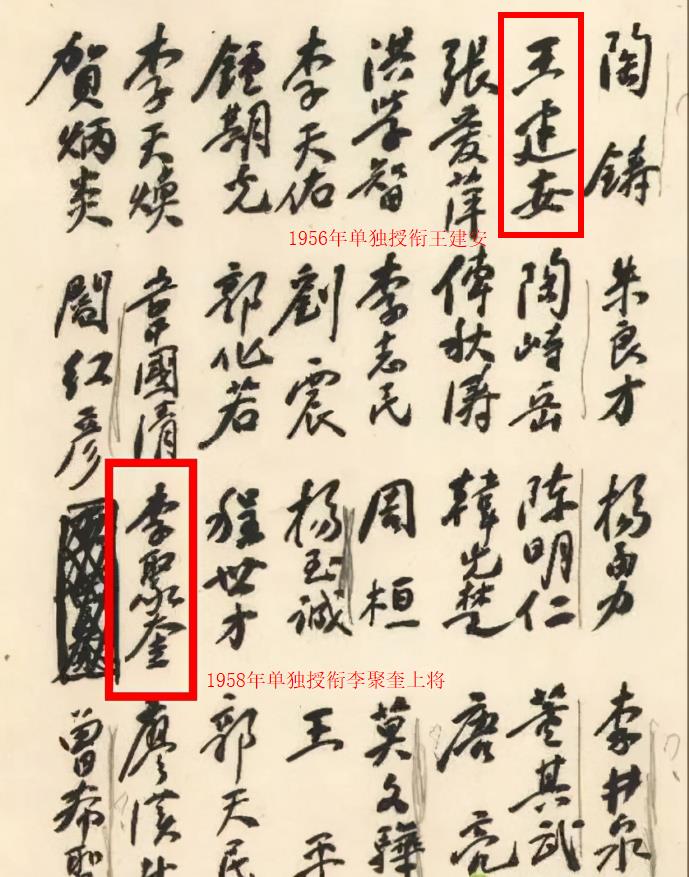 陶鑄 朱良才 楊勇 李井泉
王建安 陶峙岳 陈明仁 董其武
張愛萍 傅秋濤 韓先楚 唐亮
洪学智 李志民 周桓 莫文驊
李天佑 劉震 楊至诚 王平
鍾期光 郭化若 程世才 郭天民
李天煥 韋國清 李聚奎 廖漢
賀炳炎 閻红彦 曾希聖
1956年单独授衔王建安
1958年单独授衔李聚奎上将